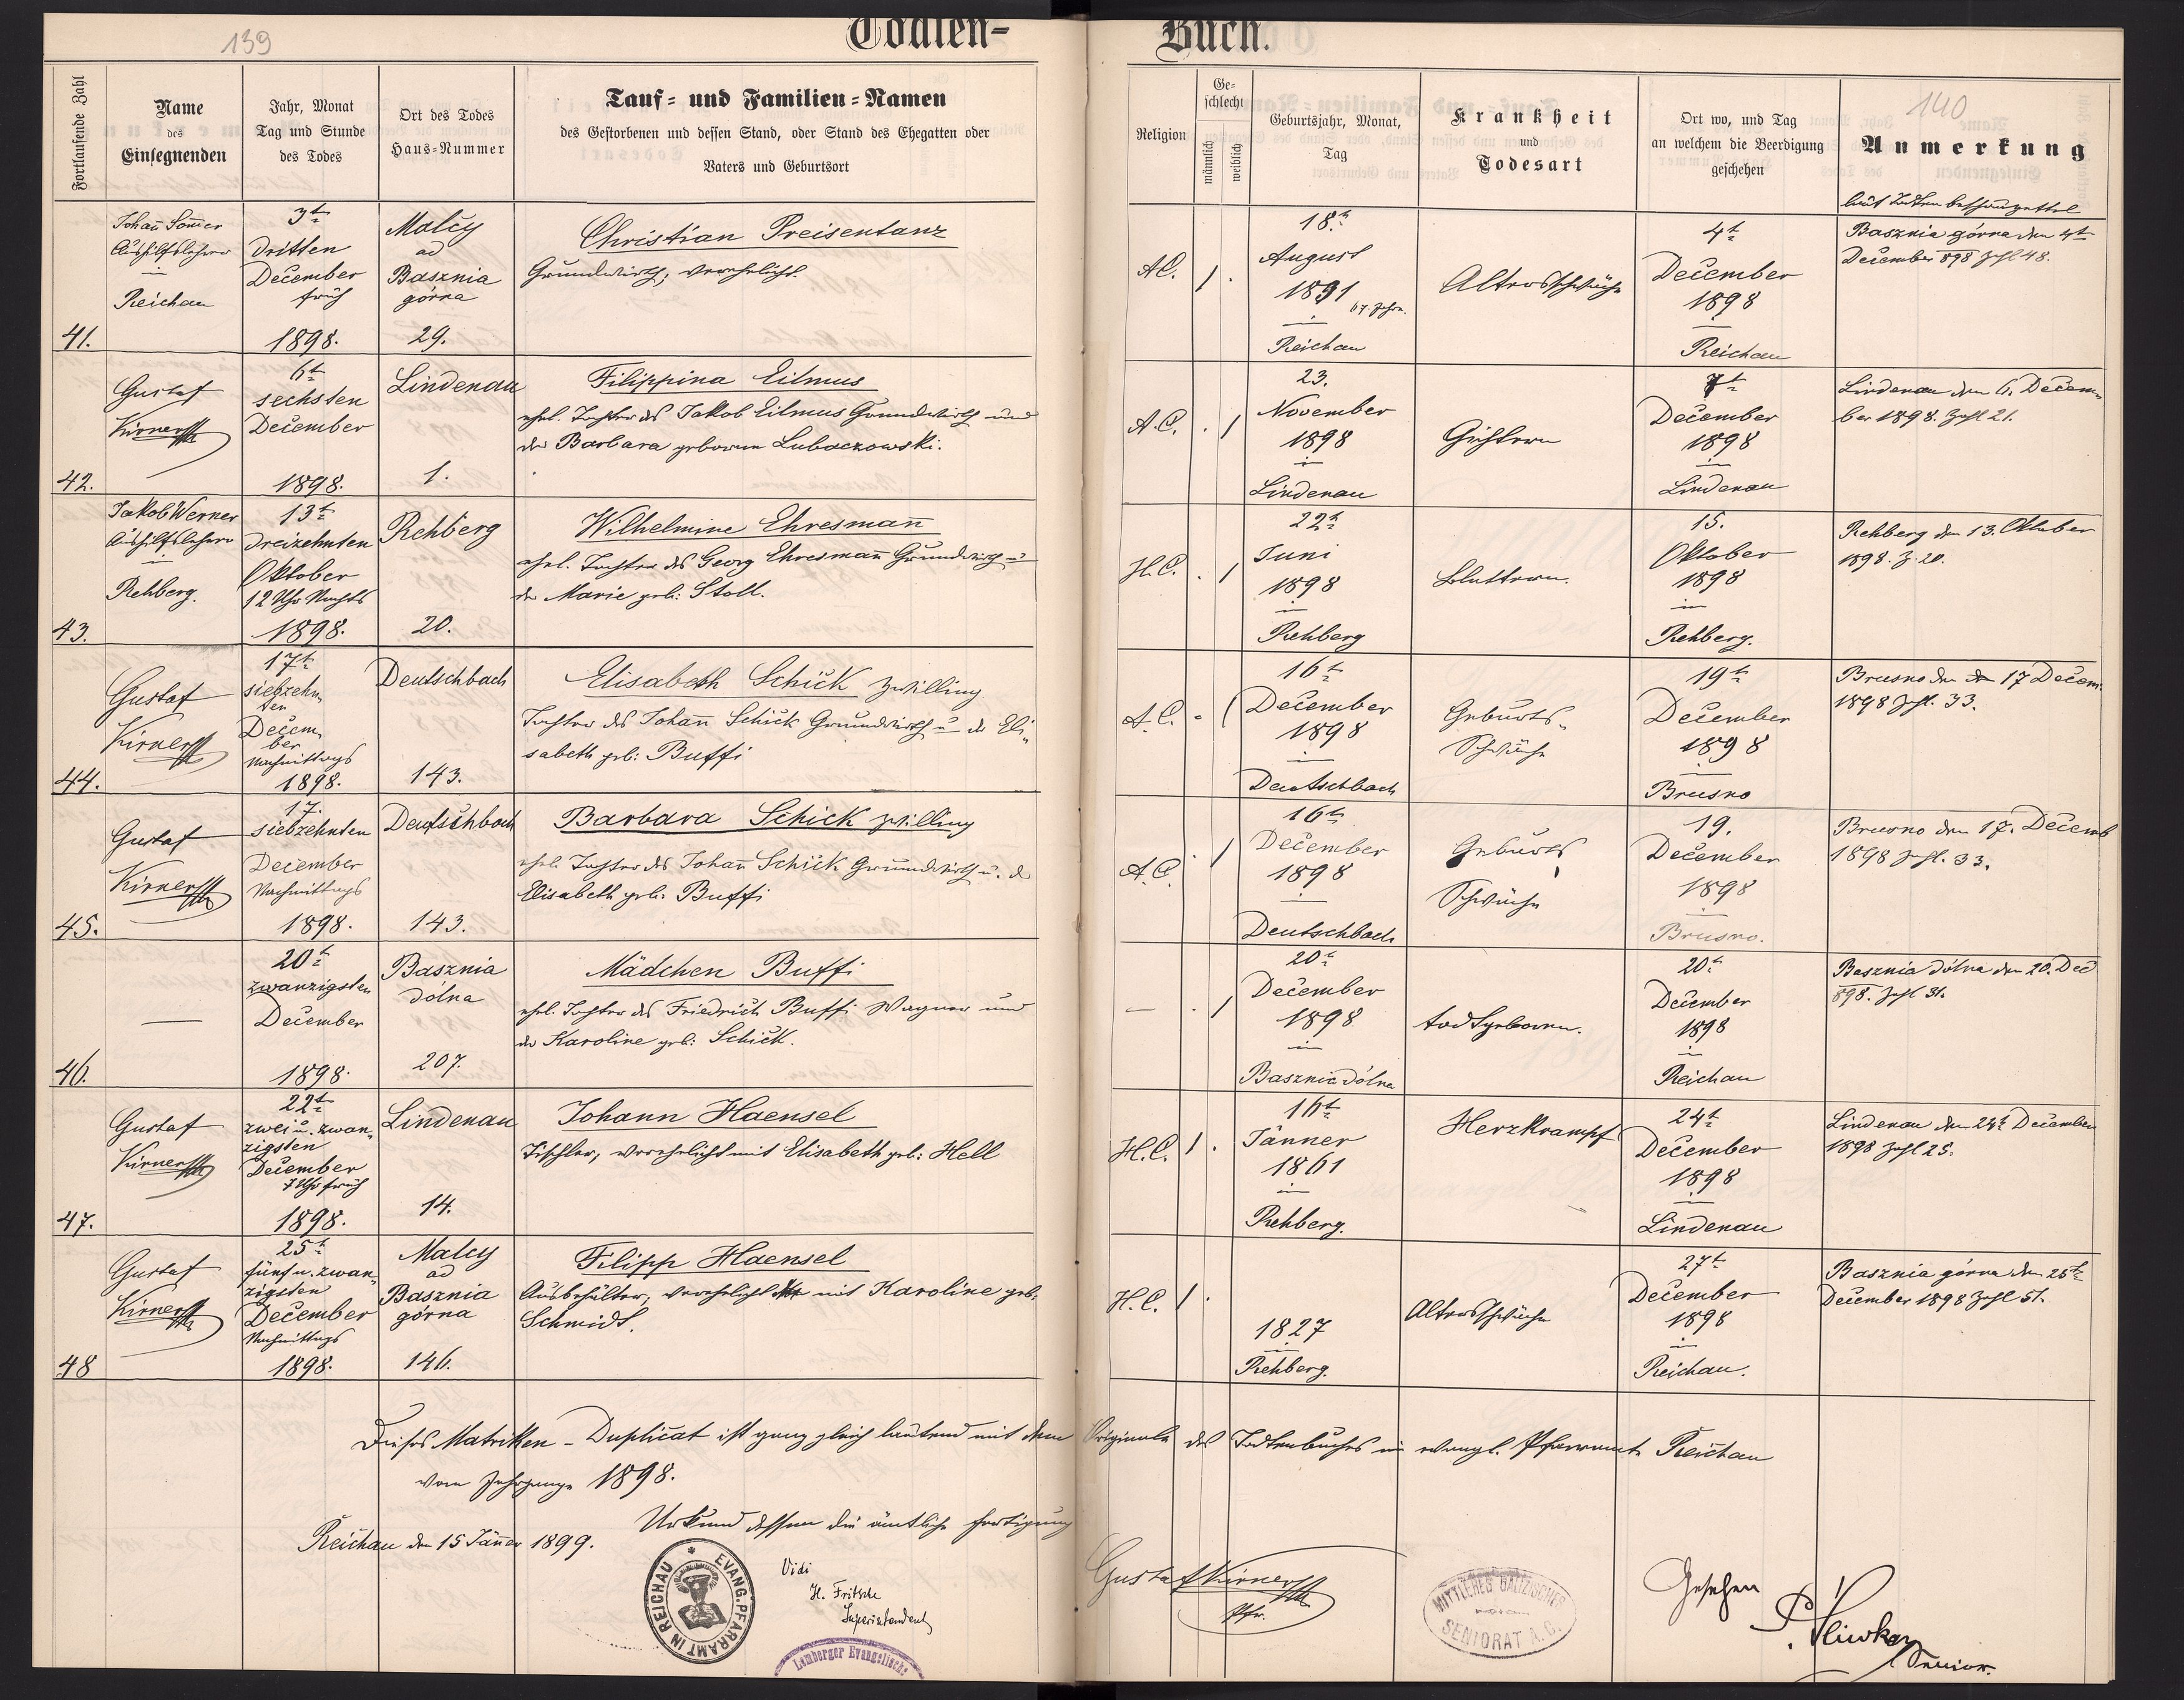 139
Todten-
Buch.
140
Fortlaufende Zahl
Name
des
Einsegnenden
Jahr, Monat
Tag und Stunde
des Todes
Ort des Todes
Haus-Nummer
Tauf- und Familien-Namen
des Gestorbenen und dessen Stand, oder Stand des Ehegatten oder
Vaters und Geburtsort
Religion
Ge-
schlecht
männlich
weiblich
Geburtsjahr, Monat,
Tag
Krankheit
und
Todesart
Ort wo, und Tag
an welchem die Beerdigung
geschehen
Anmerkung
laut Todtenbeschauzettel
41.
Johañ Som̃er
Aushilfslehrer
in
Reichau
3t
dritten
December
früh
1898.
Malcy
ad
Basznia
górna
29.
Christian Preisentanz
Grundwirth, verehelicht.
A.C.
1
.
18t
August
1831
67. Jahre.
in
Reichau
Altersschwäche
4t
December
1898
in
Reichau
Basznia górna den 4t
December 898 Zahl 48.
42.
Gustaf
Kirner
6t
sechsten
December
1898.
Lindenau
1.
Filippina Eilmus
ehel. Tochter des Jakob Eilmus Grundwirth und
der Barbara geborene Lubaczowski.
A.C.
. 1
23.
November
1898
in
Lindenau
Gichtern
7t
December
1898
in
Lindenau
Lindenau den 6. Decem-
ber 1898. Zahl 21.
43.
Jakob Werner
Aushilfslehrer
in
Rehberg.
13t
dreizehnten
Oktober
12 Uhr Nachts
1898.
Rehberg
20.
Wilhelmine Ehresmañ
ehel. Tochter des Georg Ehresmañ Grundwirth u
der Marie geb: Stoll.
H.C.
. 1
22t
Juni
1898
in
Rehberg
Blattern.
15.
Oktober
1898
in
Rehberg.
Rehberg den 13. Oktober
1898. Z. 20.
44.
Gustaf
Kirner
17t
siebzehn-
ten
Decem-
ber
Nachmittags
1898.
Deutschbach
143.
Elisabeth Schick Zwilling
Tochter des Johañ Schick Grundwirth u der Eli-
sabeth geb: Buffi
A.C.
- 1
16t
December
1898
in
Deutschbach
Geburts-
Schwäche
19t
December
1898
in
Brusno
Brusno den 17 Decem.
1898 Zahl. 33.
45.
Gustaf
Kirner
17.
siebzehnten
December
Nachmittags
1898.
Deutschbach
143.
Barbara Schick Zwilling
ehel. Tochter des Johañ Schick Grundwirth u. d
Elisabeth geb: Buffi
A.C.
. 1
16t
December
1898
in
Deutschbach
Geburts
Schwäche
19.
December
1898
in
Brusno.
Brusno den 17. Decemb
1898 Zahl. 33.
46.
—
20t
zwanzigsten
December
1898.
Basznia
dólna
207.
Mädchen Buffi
ehel. Tochter des Friedrich Buffi Wagner und
der Karoline geb: Schick.
—
. 1
20t
December
1898
in
Basznia dólna
todtgeboren.
20t
December
1898
in
Reichau
Basznia dólna den 20. Dec
898. Zahl 31.
47.
Gustaf
Kirner
22t
zwei u. zwan-
zigsten
December
7 Uhr früh
1898.
Lindenau
14.
Johann Haensel
Tischler, verehelicht mit Elisabeth geb: Hell
H.C.
1 .
16t
Jänner
1861
in
Rehberg.
Herzkrampf
24t
December
1898
in
Lindenau
Lindenau den 24t December
1898 Zahl 25.
48
Gustaf
Kirner
25t
fünf u. zwan-
zigsten
December
Nachmittags
1898.
Malcy
ad
Basznia
górna
146.
Filipp Haensel
Ausbehälter, verehelicht mit Karoline geb.
Schmidt.
H.C.
1 .
1827
in
Rehberg.
Altersschwäche
27t
December
1898
in
Reichau.
Basznia górna den 25t
December 1898 Zahl 51.
Dieses Matriken-Duplicat ist ganz gleich lautend mit dem Originale des Todtenbuches im evangl. Pfarramte Reichau
vom Jahrgange 1898.
Urkund dessen die ämtliche Fertigung
Reichau den 15 Jäñer 1899.
EVANG. PFARRAMT IN REICHAU
Vidi
H. Fritsche
Superintendent
Lemberger Evangelische
Gustaf Kirner
Pfr.
MITTLERES GALIZISCHES
SENIORAT A.C.
Gesehen
Senior.